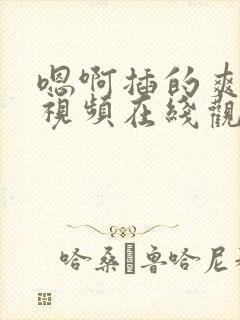 嗯啊插的爽
視頻在綫觀
哈桑·魯哈尼